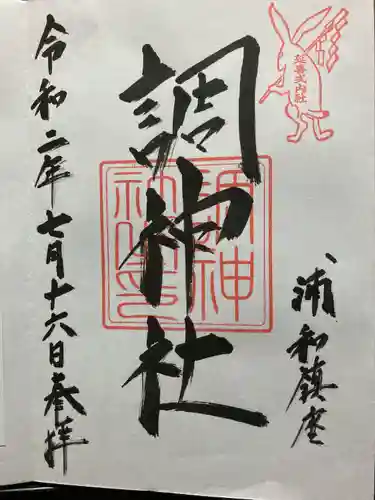 延喜式内社
浦和鎮座
調神社
令和二年七月十六日参拝